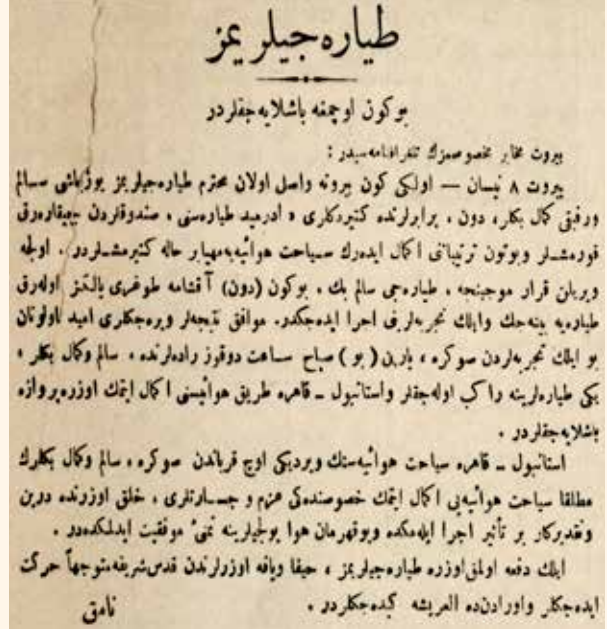 طیاره‌جیلریمز
بوكون اوچمغه باشلایه‌جقلردر
بیروت مخابر مخصوصمزك تلغرافنامه‌سیدر :
بیروت ۸ نیسان — اولكی كون بیروته واصل اولان محترم طیاره‌جیلریمز یوزباشی سالم
ورفیقی كمال بكلر، دون ، برابرلرنده كتیردكلری « ادرمید طیاره‌سنی ، صندوقلردن چیقاره‌رق
قورمشلر وبوتون ترتیباتی اكمال ایده‌رك سیاحت هوائیه‌یه مهیا بر حاله كتیرمشلردر . اولجه
ویریلن قرار موجبنجه ، طیاره‌جی سالم بك ، بوكون (دون) آقشامه طوغری یالكز اوله‌رق
طیاره‌یه بینه‌جك وایلك تجربه‌لرینی اجرا ایده‌جكدر. موافق نتیجه‌لر ویره‌جكلری امید اولونان
بو ایلك تجربه‌لردن صوكره ، یارین ( بو ) صباح ساعت دوقوز راده‌لرنده ، سالم وكمال بكلر ،
یكی طیاره‌لرینه راكب اوله‌جقلر واستانبول ـ قاهره طریق هوائیسنی اكمال ایتمك اوزره پروازه
باشلایه‌جقلردر .
استانبول ـ قاهره سیاحت هوائیه‌سنك ویردیكی اوچ قرباندن صوكره ، سالم وكمال بكلرك
مطلقا سیاحت هوائیه‌یی اكمال ایتمك خصوصنده‌كی عزم و جسارتلری ، خلق اوزرنده درین
وتقدیركار بر تأثیر اجرا ایله‌مكده وبو قهرمان هوا یولجیلرینه تمنیٔ موفقیت ایدلمكده‌در .
ایلك دفعه اولمق اوزره طیاره‌جیلریمز ، حیفا ویافه اوزرلرندن قدس شریفه متوجهاً حركت
ایده‌جكلر واورادن‌ده العریشه كیده‌جكلردر .
نامق